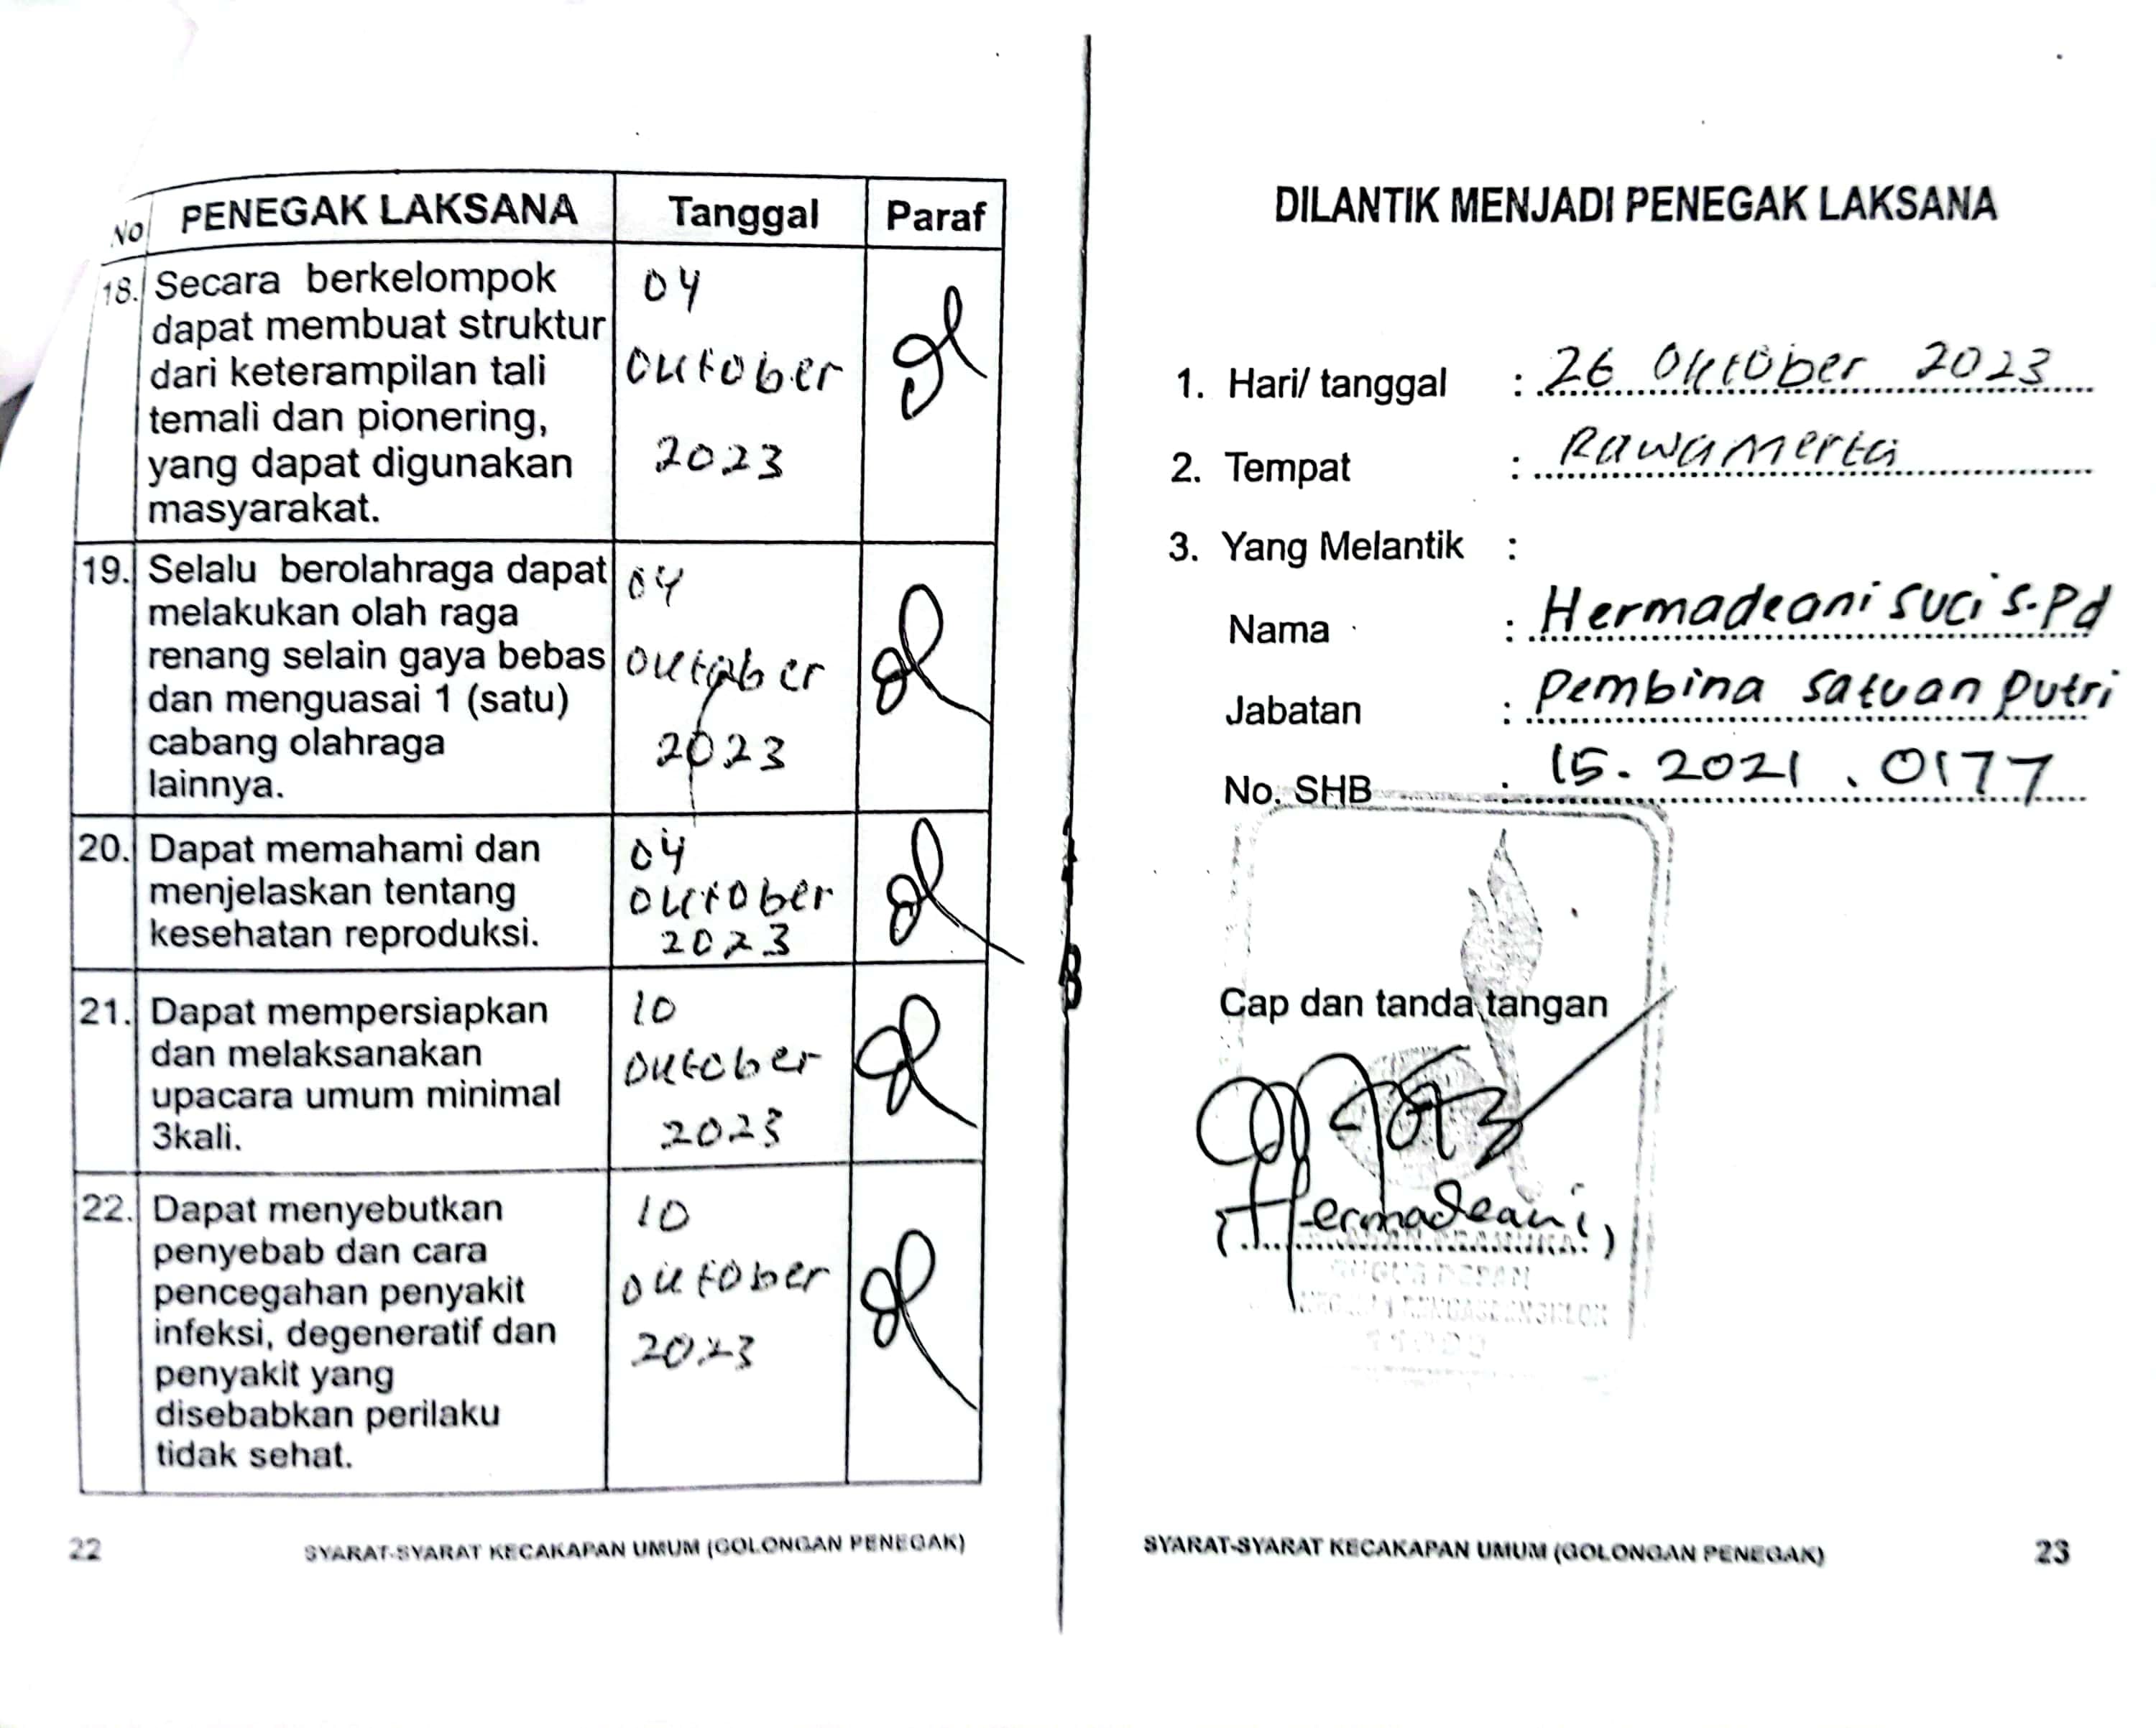 No PENEGAK LAKSANA Tanggal Paraf
18. Secara berkelompok
dapat membuat struktur
dari keterampilan tali
temali dan pionering,
yang dapat digunakan
masyarakat.
04
Oktober
2023
19. Selalu berolahraga dapat
melakukan olah raga
renang selain gaya bebas
dan menguasai 1 (satu)
cabang olahraga
lainnya.
04
Oktober
2023
20. Dapat memahami dan
menjelaskan tentang
kesehatan reproduksi.
04
Oktober
2023
21. Dapat mempersiapkan
dan melaksanakan
upacara umum minimal
3kali.
10
Oktober
2023
22. Dapat menyebutkan
penyebab dan cara
pencegahan penyakit
infeksi, degeneratif dan
penyakit yang
disebabkan perilaku
tidak sehat.
10
Oktober
2023
22 SYARAT-SYARAT KECAKAPAN UMUM (GOLONGAN PENEGAK)
DILANTIK MENJADI PENEGAK LAKSANA
1. Hari/ tanggal : 26 Oktober 2023
2. Tempat : Rawamerta
3. Yang Melantik :
Nama : Hermadeani suci s.Pd
Jabatan : Pembina satuan putri
No. SHB : 15. 2021 . 0177
Cap dan tanda tangan
(Hermadeani)
GUGUS DEPAN
SYARAT-SYARAT KECAKAPAN UMUM (GOLONGAN PENEGAK) 23